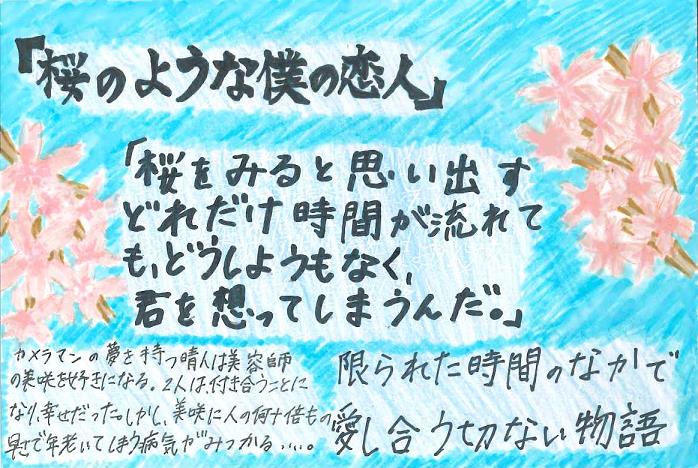 『桜のような僕の恋人』
「桜をみると思い出す
どれだけ時間が流れて
も、どうしようもなく、
君を想ってしまうんだ。」
カメラマンの夢を持つ晴人は美容師
の美咲を好きになる。2人は付き合うことに
なり、幸せだった。しかし、美咲に人の何十倍もの
早さで年老いてしまう病気がみつかる....。
限られた時間のなかで
愛し合う切ない物語